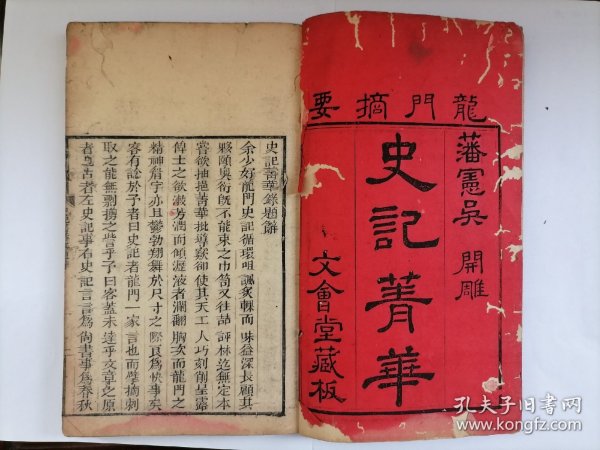 龍門摘要
藩憲吳 開雕
史記菁華
文會堂藏板
史記菁華錄題辭
余少好龍門史記循環咀諷炙輠而味益深長顧其
夥頤奧衍旣不能束之巾笥又往喆評林迄無定本
嘗欲抽挹菁華批導窾卻使其天工人巧刻削呈露
俾士之欲漱芳潤而傾瀝液者瀾翻胸次而龍門之
精神眉宇亦且鬱勃翔舞於尺寸之際良爲快事矣
客有諗於予者曰史記者龍門一家言也而摘刺
取之能無剽擄之訾乎予曰客蓋未達乎文章之原
者古者左史記事右史記言言爲尚書事爲春秋
孔夫子旧书网
book.kongfz.com